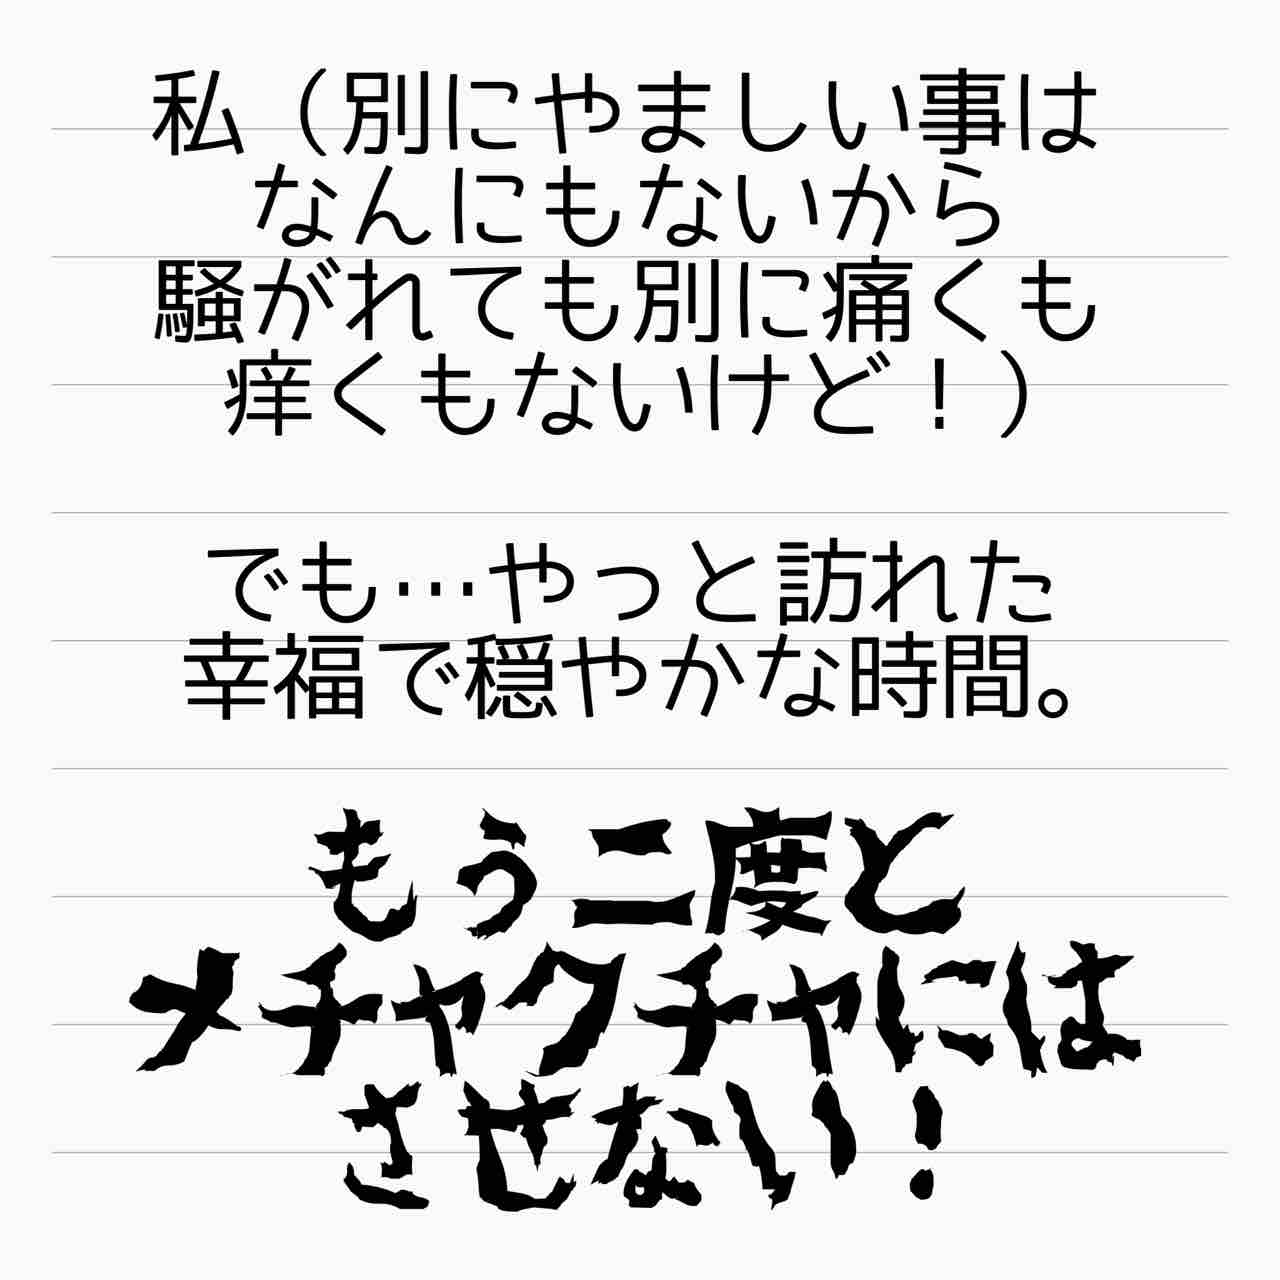 私（別にやましい事は
なんにもないから
騒がれても別に痛くも
痒くもないけど！）
でも…やっと訪れた
幸福で穏やかな時間。
もう二度と
メチャクチャには
させない！